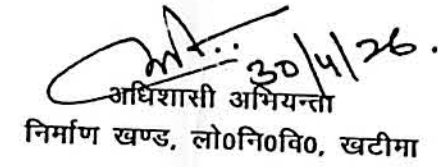 30/4/26.
अधिशासी अभियन्ता
निर्माण खण्ड, लो०नि०वि०, खटीमा